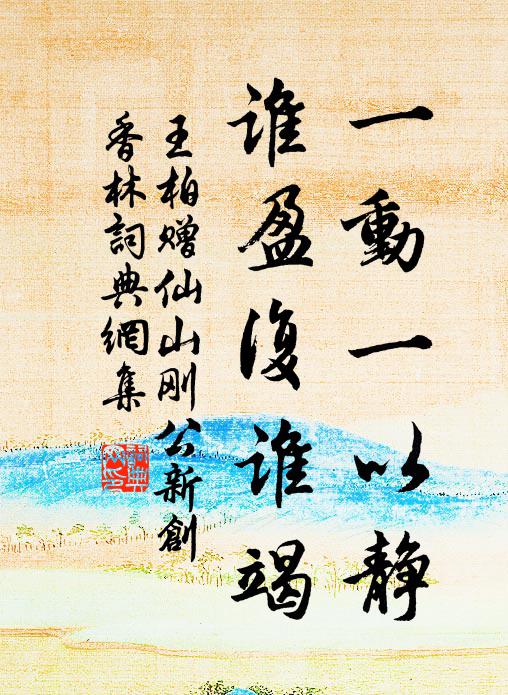 一動一以静
誰盈復誰竭
王柏赠仙山刚公新創
香林詞典網集